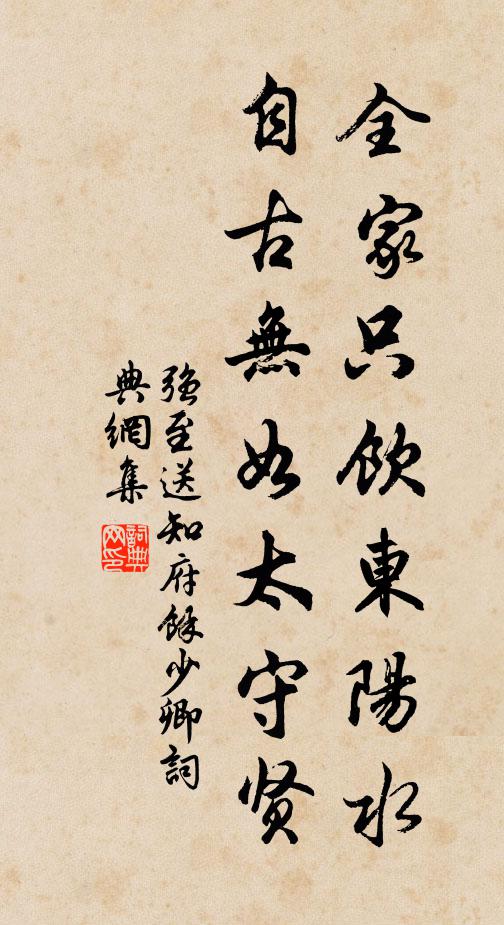 全家只飲東陽水
自古無如太守贤
强至送知府餘少卿詞
典網集
詞典
网印